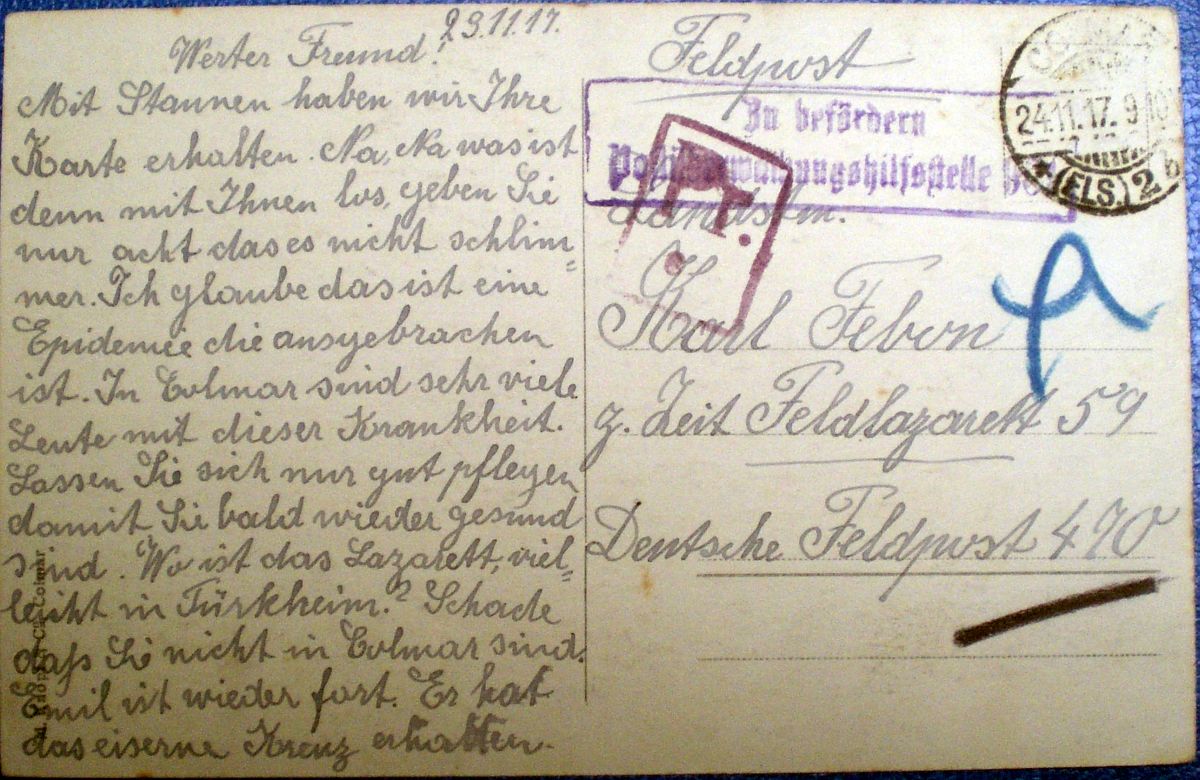 23.11.17.
Werter Freund!
Mit Staunen haben wir Ihre
Karte erhalten. Na, Na was ist
denn mit Ihnen los, geben Sie
nur acht das es nicht schlim=
mer. Ich glaube das ist eine
Epidemie die ausgebrachen
ist. In Colmar sind sehr viele
Leute mit dieser Krankheit.
Lassen Sie sich nur gut pflegen
damit Sie bald wieder gesund
sind. Wo ist das Lazarett, viel=
leicht in Türkheim? Schade
daß Sie nicht in Colmar sind.
Emil ist wieder fort. Er hat
das eiserne Kreuz erhalten.
Feldpost
Zu befördern
Postüberwachungshilfsstelle
P.
Landstm.
Karl Febon
z. Zeit Feldlazarett 59
Deutsche Feldpost 470
24.11.17. 9-10
(ELS.) 2 b
Colmar